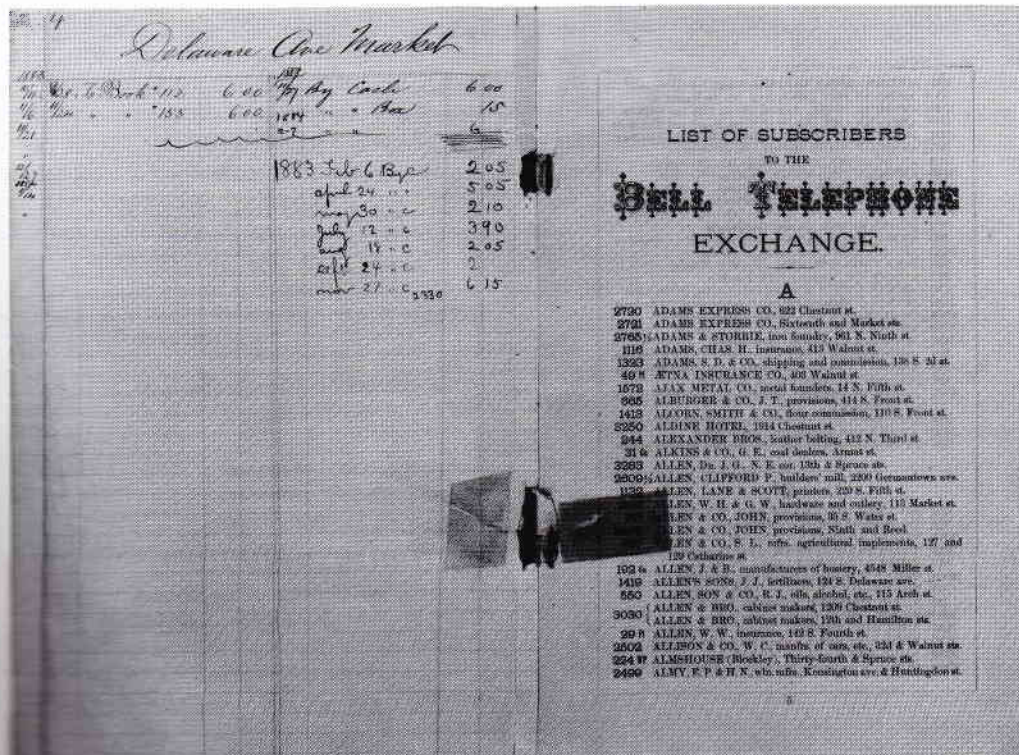 4
Delaware Ave Market
Book " 113 6 00 By Cash 6 00
" " " 153 6 00 1884 " " Box 15
6
1883 Feb 6 By c 2 05
april 24 " " 5 05
may 30 " c 2 10
July 12 " c 3 90
aug 18 " c 2 05
sept 24 " c 2
nov 27 " c 2330 6 15
LIST OF SUBSCRIBERS
TO THE
BELL TELEPHONE
EXCHANGE.
A
2720 ADAMS EXPRESS CO., 622 Chestnut st.
2721 ADAMS EXPRESS CO., Sixteenth and Market sts.
2765½ ADAMS & STORRIE, iron foundry, 961 N. Ninth st.
1116 ADAMS, CHAS. H., insurance, 413 Walnut st.
1323 ADAMS, S. D. & CO., shipping and commission, 138 S. 2d st.
49 ÆTNA INSURANCE CO., 403 Walnut st.
1572 AJAX METAL CO., metal founders, 14 N. Fifth st.
665 ALBURGER & CO., J. T., provisions, 414 S. Front st.
1413 ALCORN, SMITH & CO., flour commission, 110 S. Front st.
3250 ALDINE HOTEL, 1914 Chestnut st.
244 ALEXANDER BROS., leather belting, 412 N. Third st.
31 ALKINS & CO., G. E., coal dealers, Armat st.
3283 ALLEN, Dr. J. G., N. E. cor. 13th & Spruce sts.
2609½ ALLEN, CLIFFORD P., builders' mill, 2200 Germantown ave.
1132 ALLEN, LANE & SCOTT, printers, 229 S. Fifth st.
LEN, W. H. & G. W., hardware and cutlery, 113 Market st.
LEN & CO., JOHN, provisions, 33 S. Water st.
LEN & CO., JOHN, provisions, Ninth and Reed.
LEN & CO., S. L., mfrs. agricultural implements, 127 and
129 Catharine st.
192 ALLEN, J. & B., manufacturers of hosiery, 4548 Miller st.
1419 ALLEN'S SONS, J. J., fertilizers, 124 S. Delaware ave.
550 ALLEN, SON & CO., R. J., oils, alcohol, etc., 115 Arch st.
3030 { ALLEN & BRO., cabinet makers, 1209 Chestnut st.
ALLEN & BRO., cabinet makers, 12th and Hamilton sts.
29 ALLEN, W. W., insurance, 142 S. Fourth st.
2502 ALLISON & CO., W. C., manfrs. of cars, etc., 32d & Walnut sts.
224 W ALMSHOUSE (Blockley), Thirty-fourth & Spruce sts.
2499 ALMY, E. P. & H. N., wln. mfrs., Kensington ave. & Huntingdon st.
5